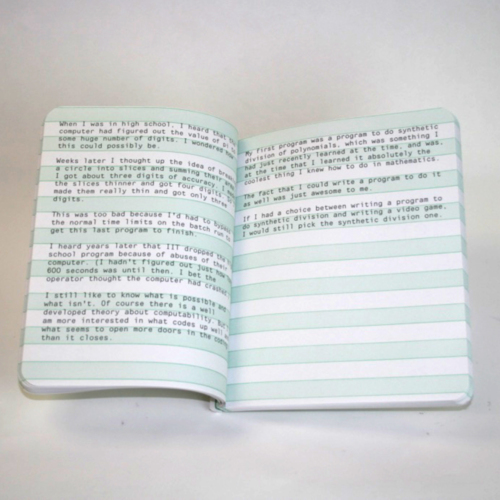 When I was in high school, I heard that
computer had figured out the value of pi
some huge number of digits. I wondered how
this could possibly be.
Weeks later I thought up the idea of
a circle into slices and summing
I got about three digits of accuracy. I
the slices thinner and got four digits.
made them really thin and got only three
digits.
This was too bad because I'd had to bypass
the normal time limits on the batch run to
get this last program to finish.
I heard years later that IIT dropped the
school program because of abuses of their
computer. (I hadn't figured out just how
600 seconds was until then. I bet the
operator thought the computer had crashed
I still like to know what is possible and
what isn't. Of course there is a well
developed theory about computability. But I
am more interested in what codes up well and
what seems to open more doors in the
than it closes.
My first program was a program to do synthetic
division of polynomials, which was something I
had just recently learned at the time, and was,
at the time that I learned it absolutely the
coolest thing I knew how to do in mathematics.
The fact that I could write a program to do it
as well was just awesome to me.
If I had a choice between writing a program to
do synthetic division and writing a video game,
I would still pick the synthetic division one.